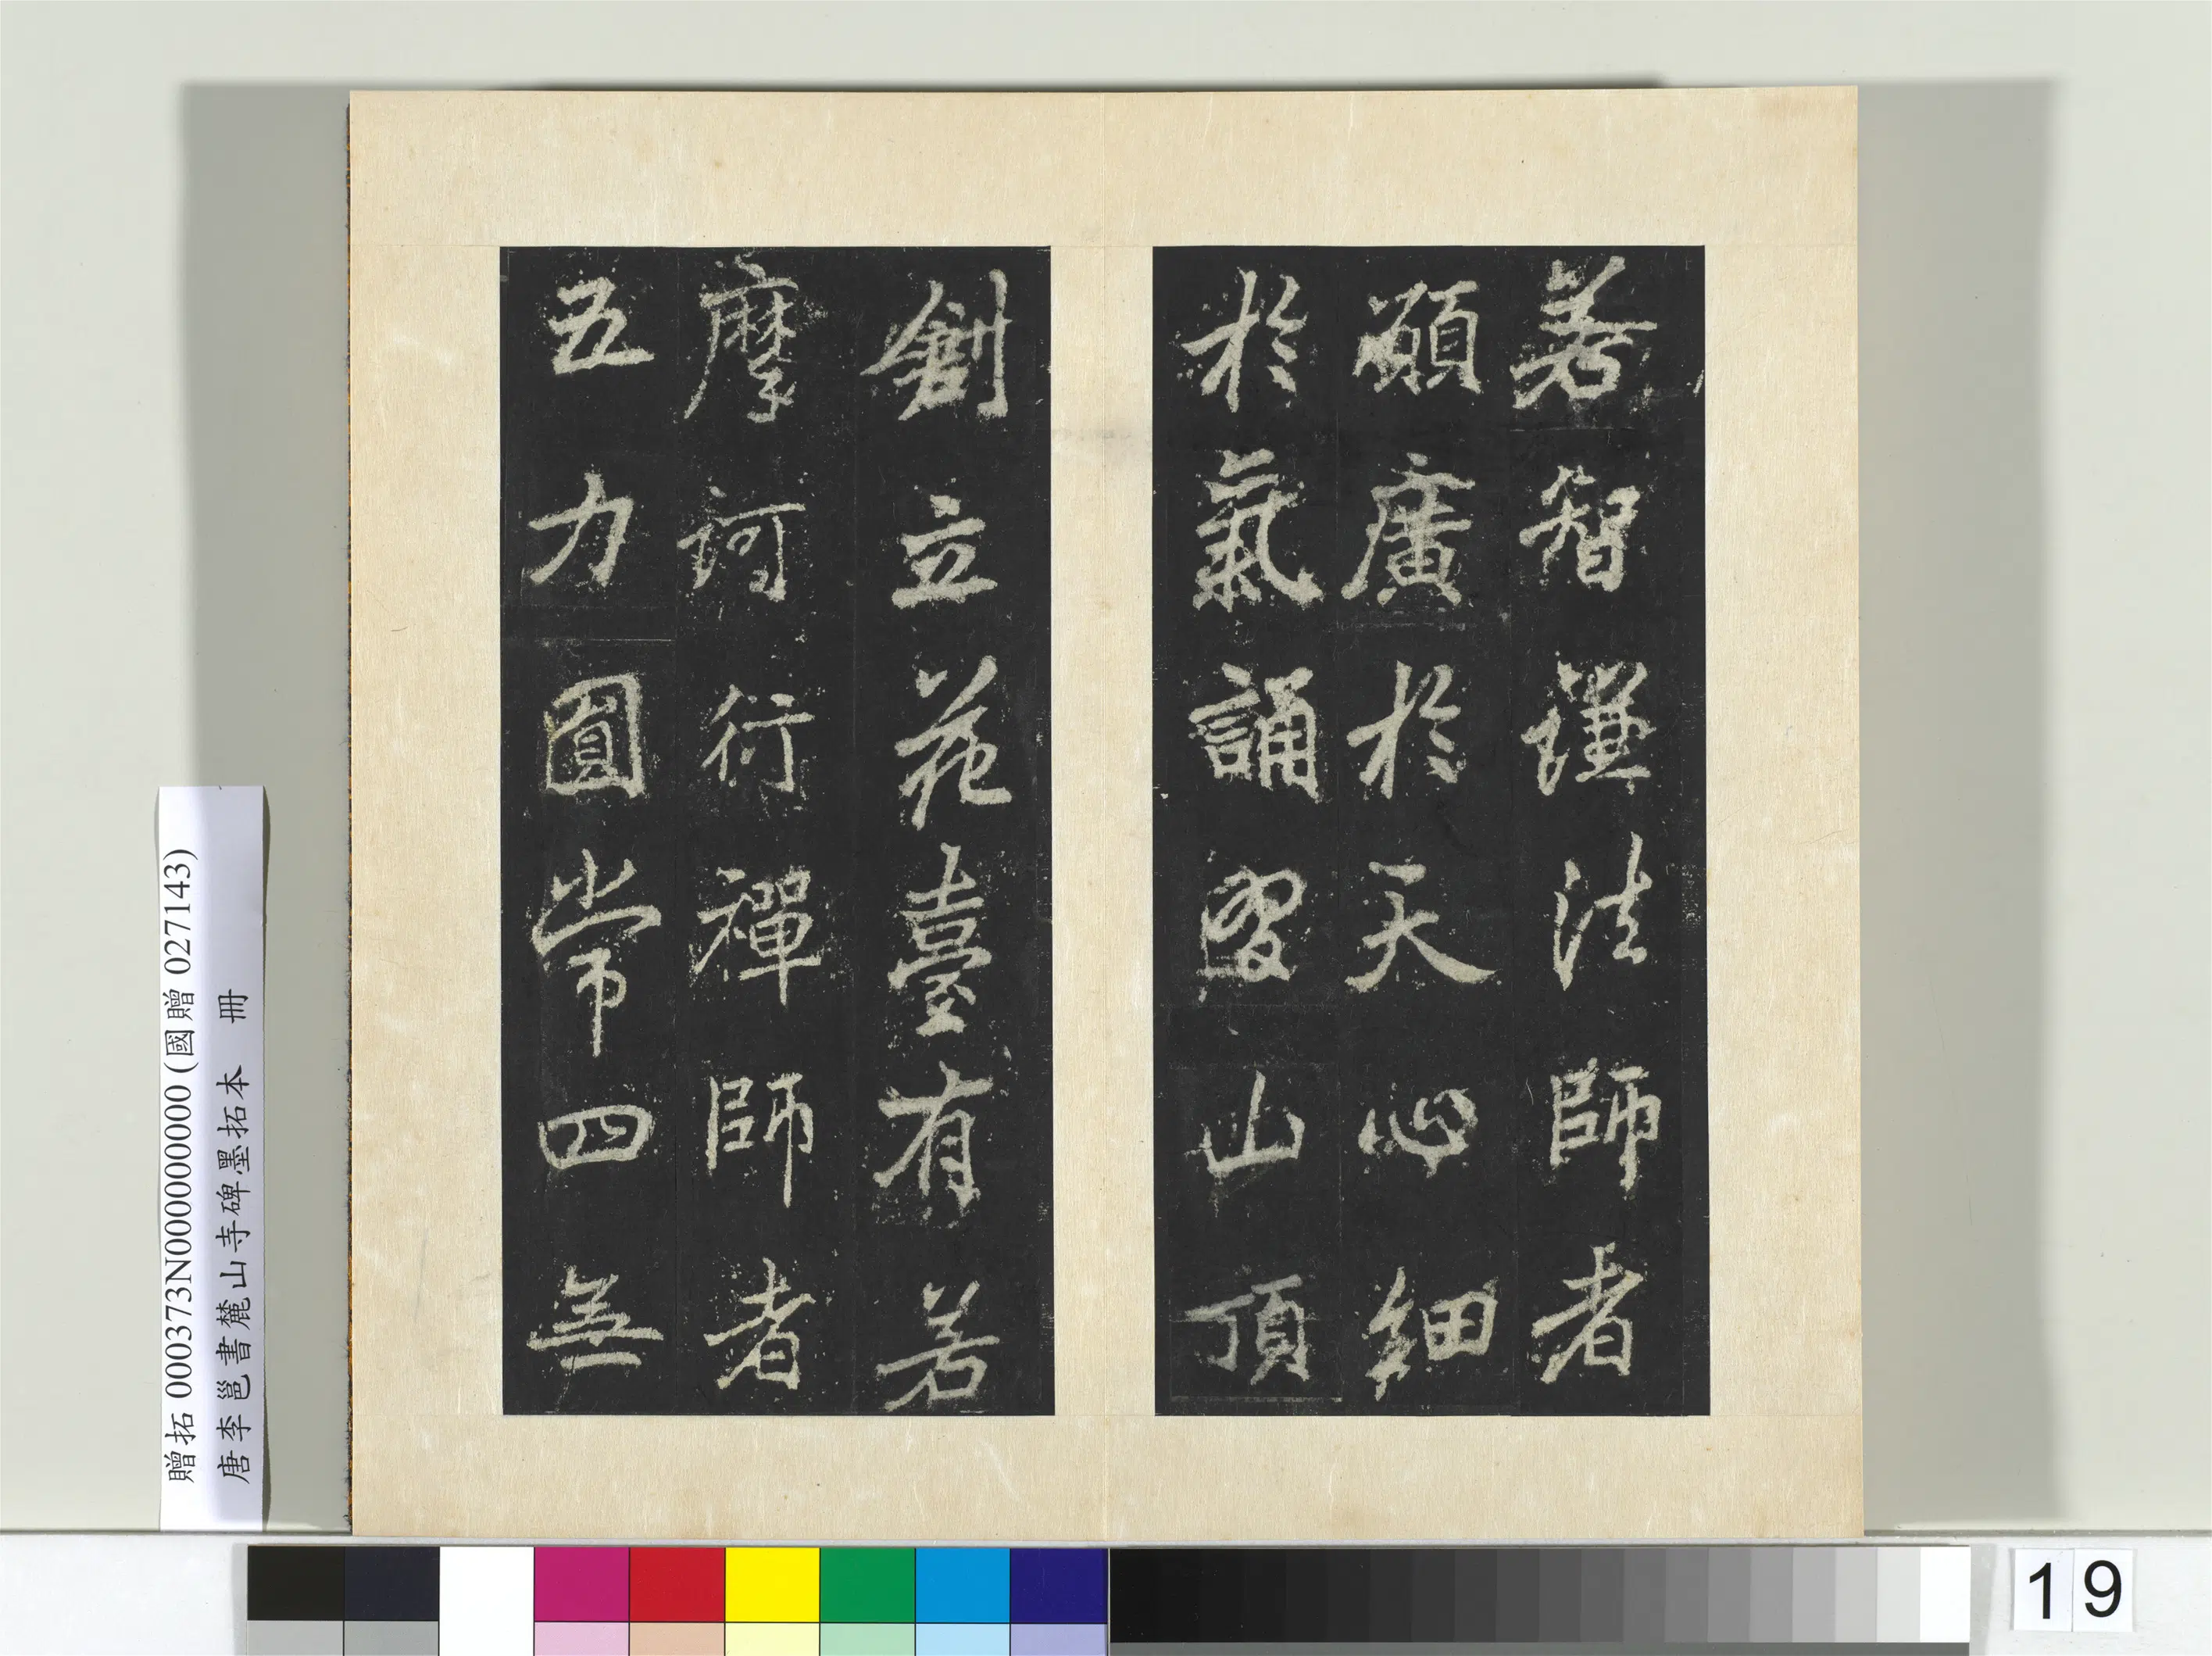 若智謙法師者
願廣於天心細
於氣誦習山頂
創立花臺有若
摩訶衍禪師者
五力圓常四無
贈拓 000373N000000000 (國贈 027143)
唐李邕書麓山寺碑墨拓本 冊
19